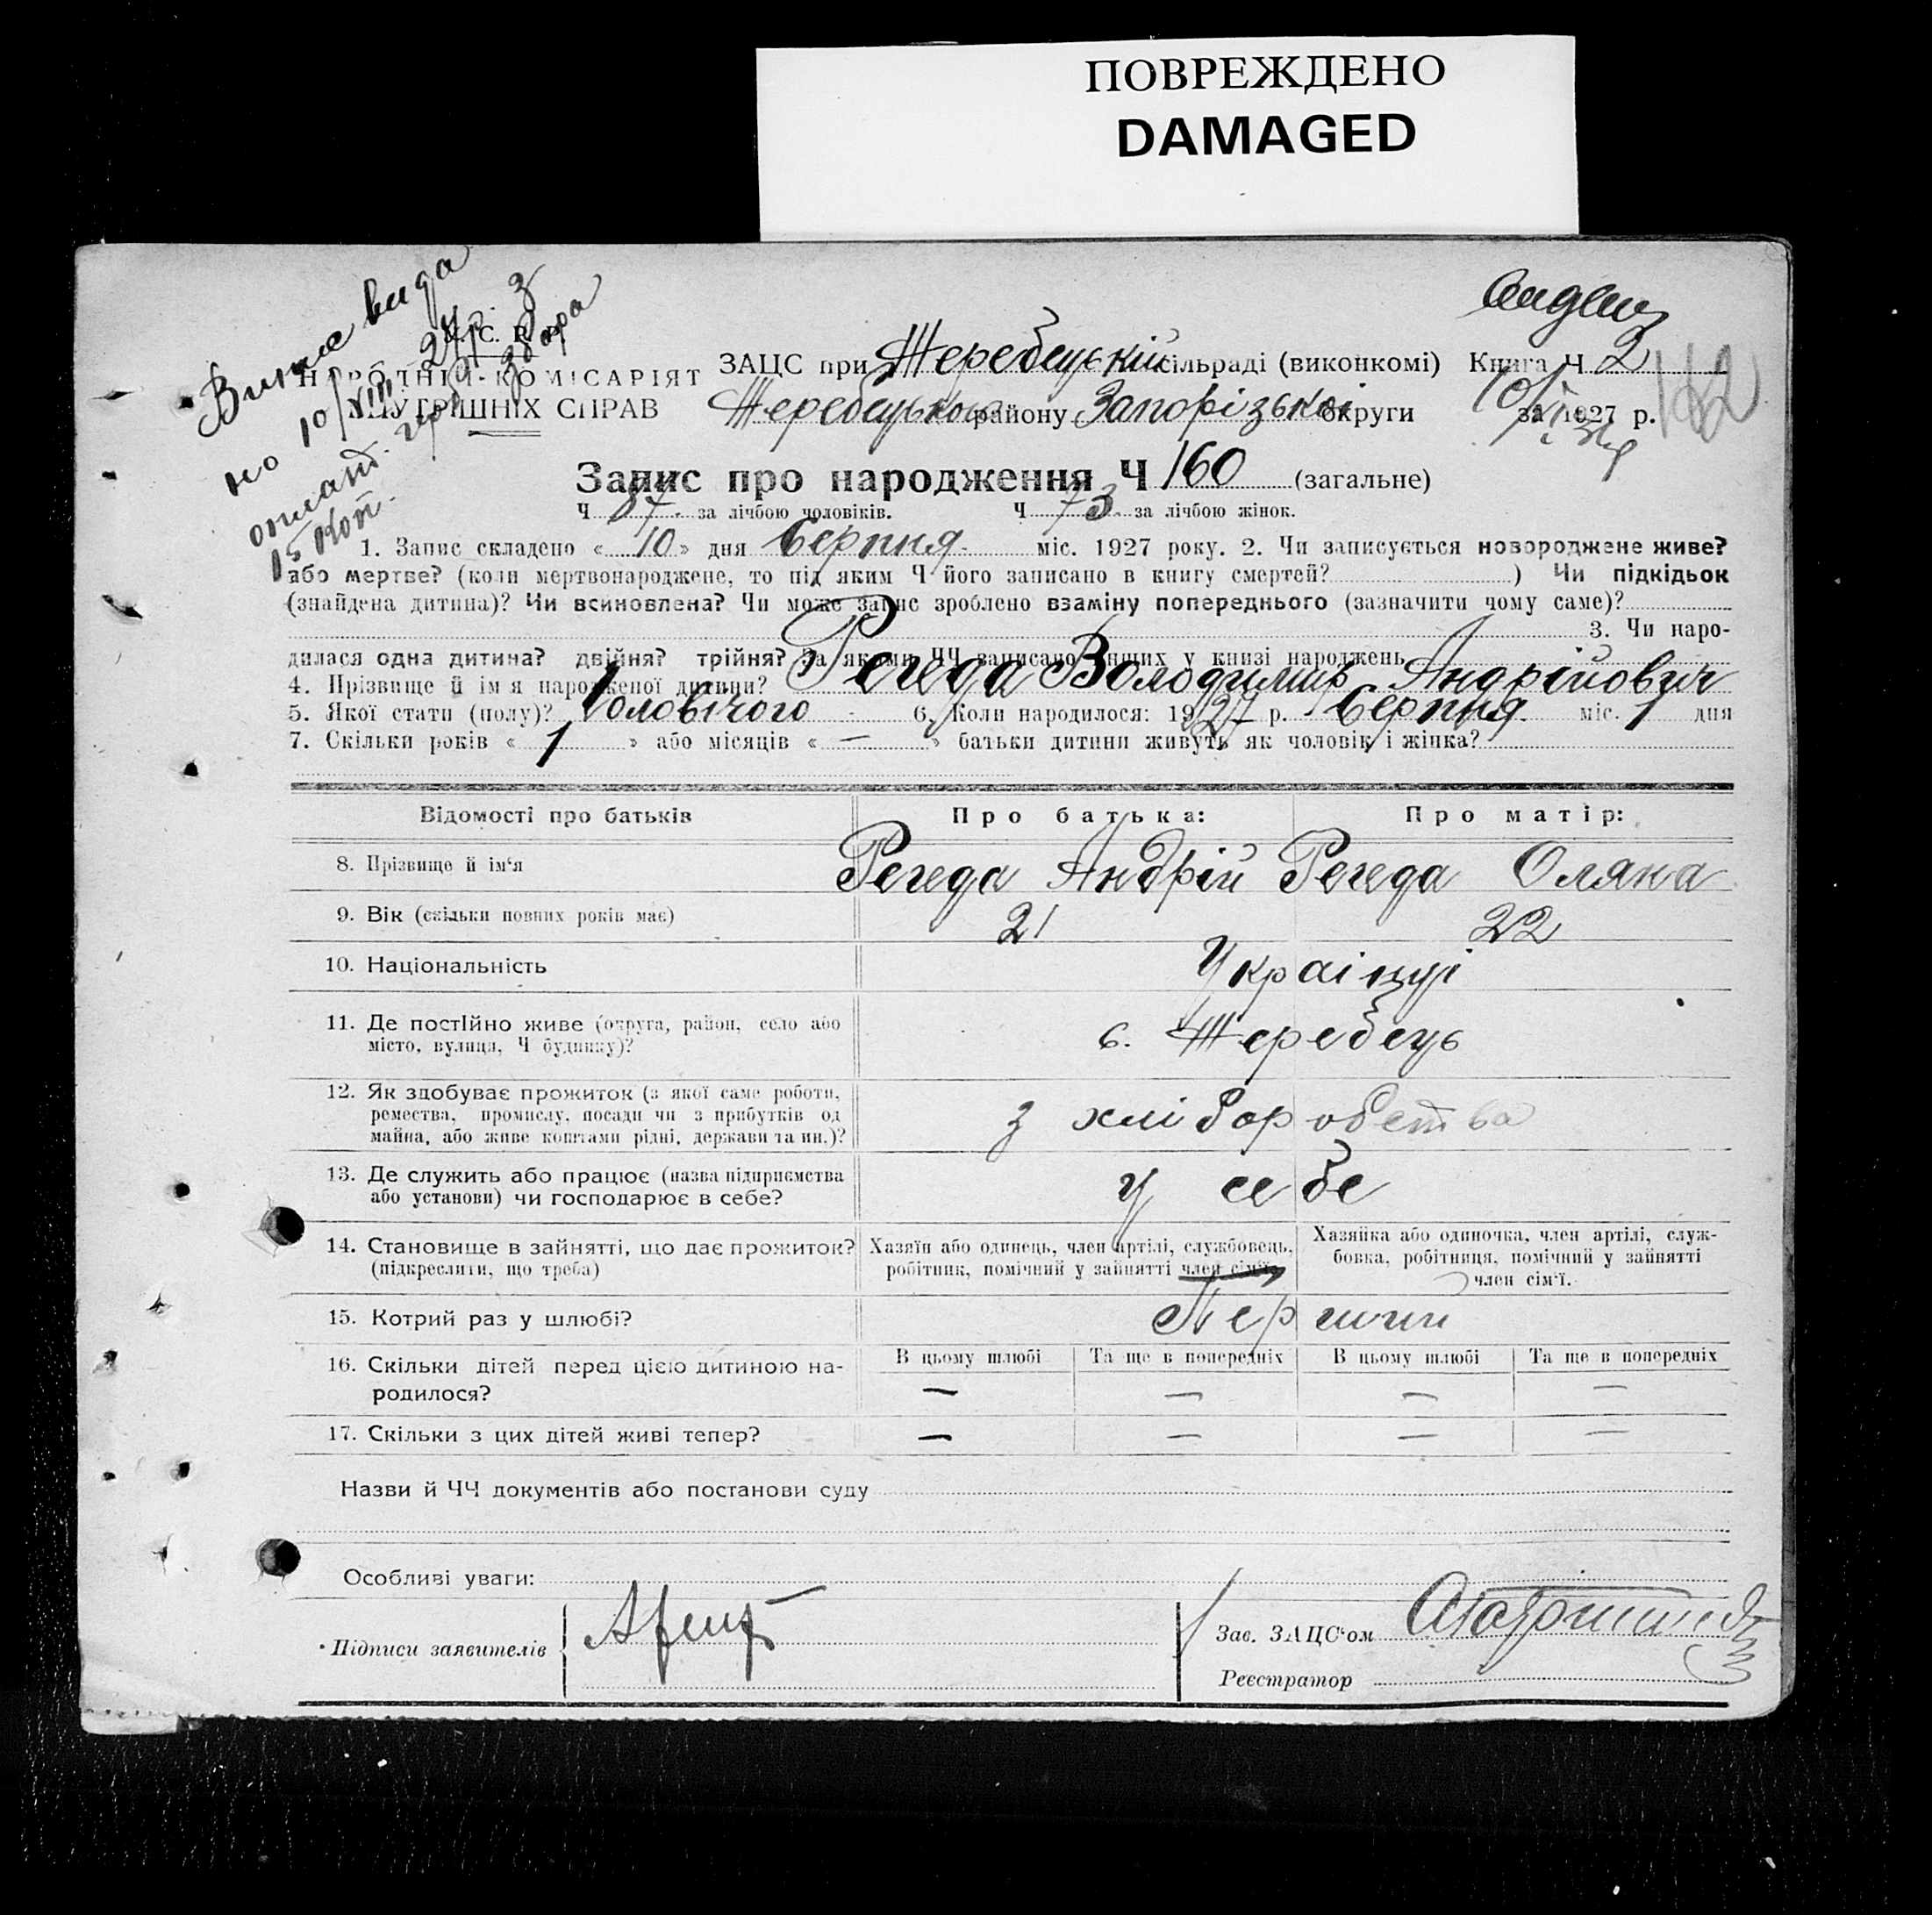 ПОВРЕЖДЕНО
DAMAGED
Випис вида
но 10/VIII 27 р. з
оплат. герб. збора
15 коп.
У. С. Р. Р.
НАРОДНІЙ КОМІСАРІЯТ
ВНУТРІШНІХ СПРАВ
ЗАЦС при Жеребецькій сільраді (виконкомі) Книга Ч 2
Жеребецького району Запорізької округи за 1927 р.
Запис про народження Ч 160 (загальне)
Ч 87. за лічбою чоловіків. Ч 73. за лічбою жінок.
1. Запис складено « 10 » дня Серпня міс. 1927 року. 2. Чи записується новороджене живе?
або мертве? (коли мертвонароджене, то під яким Ч його записано в книгу смертей? ) Чи підкідьок
(знайдена дитина)? Чи всиновлена? Чи може запис зроблено взаміну попереднього (зазначити чому саме)?
3. Чи наро-
дилася одна дитина? двійня? трійня? За якими ЧЧ записано інших у книзі народжень
4. Прізвище й ім'я народженої дитини? Регеда Володимир Андрійович
5. Якої стати (полу)? Чоловічого 6. Коли народилося: 1927 р. Серпня міс. 1 дня
7. Скільки років « 1 » або місяців « — » батьки дитини живуть як чоловік і жінка?
Відомості про батьків Про батька: Про матір:
8. Прізвище й ім'я Регеда Андрій Регеда Оляна
9. Вік (скільки повних років має) 21 22
10. Національність Украінці
11. Де постійно живе (округа, район, село або
місто, вулиця, Ч будинку)? с. Жеребець
12. Як здобуває прожиток (з якої саме роботи,
ремества, промислу, посади чи з прибутків од
майна, або живе коштами рідні, держави та ин.)? з хліборобства
13. Де служить або працює (назва підприємства
або установи) чи господарює в себе? у себе
14. Становище в зайнятті, що дає прожиток?
(підкреслити, що треба)
Хазяїн або одинець, член артілі, службовець,
робітник, помічний у зайнятті член сім'ї.
Хазяйка або одиночка, член артілі, служ-
бовка, робітниця, помічний у зайнятті
член сім'ї.
15. Котрий раз у шлюбі? Перший
16. Скільки дітей перед цією дитиною на-
родилося?
В цьому шлюбі Та ще в попередніх В цьому шлюбі Та ще в попередніх
— — — —
17. Скільки з цих дітей живі тепер? — — — —
Назви й ЧЧ документів або постанови суду
Особливі уваги:
Підписи заявителів
Зав. ЗАЦС'ом
Реєстратор